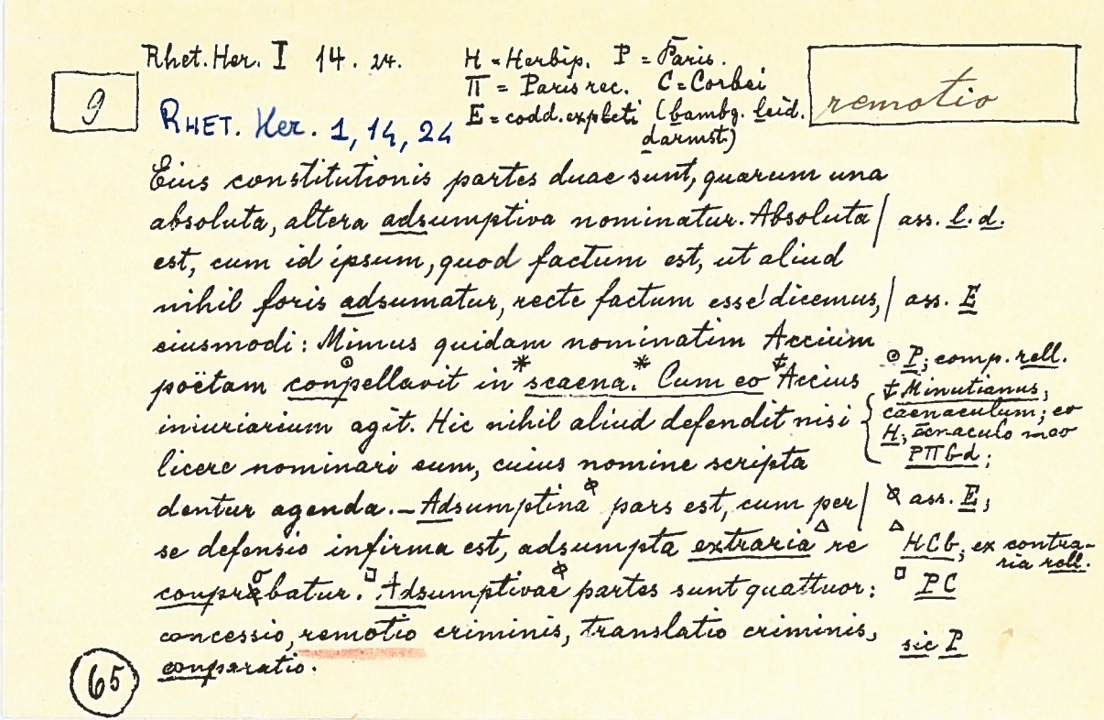 Rhet. Her. I 14. 24.
H = Herbip. P = Paris.
Π = Paris rec. C = Corbei
E = codd. expleti (bambg. leid.
darmst.)
9
remotio
RHET. Her. 1, 14, 24
Eius constitutionis partes duae sunt, quarum una
absoluta, altera adsumptiva nominatur. Absoluta / ass. l. d.
est, cum id ipsum, quod factum est, ut aliud
nihil foris adsumatur, recte factum esse dicemus, / ass. E
eiusmodi: Mimus quidam nominatim Accium
poëtam conpellavit in scaena. Cum eo Accius
⊙ P; comp. rell.
iniuriarum agit. Hic nihil aliud defendit nisi
Minutianus;
caenaculum; eo
H; cenaculo meo
PΠBd;
licere nominari eum, cuius nomine scripta
dentur agenda. – Adsumptina pars est, cum per / ass. E;
se defensio infirma est, adsumpta extraria re
△ HCb; ex contra-
ria rell.
conprobatur. □ Adsumptivae partes sunt quattuor: □ PC
concessio, remotio criminis, translatio criminis,
conparatio.
sic P
65